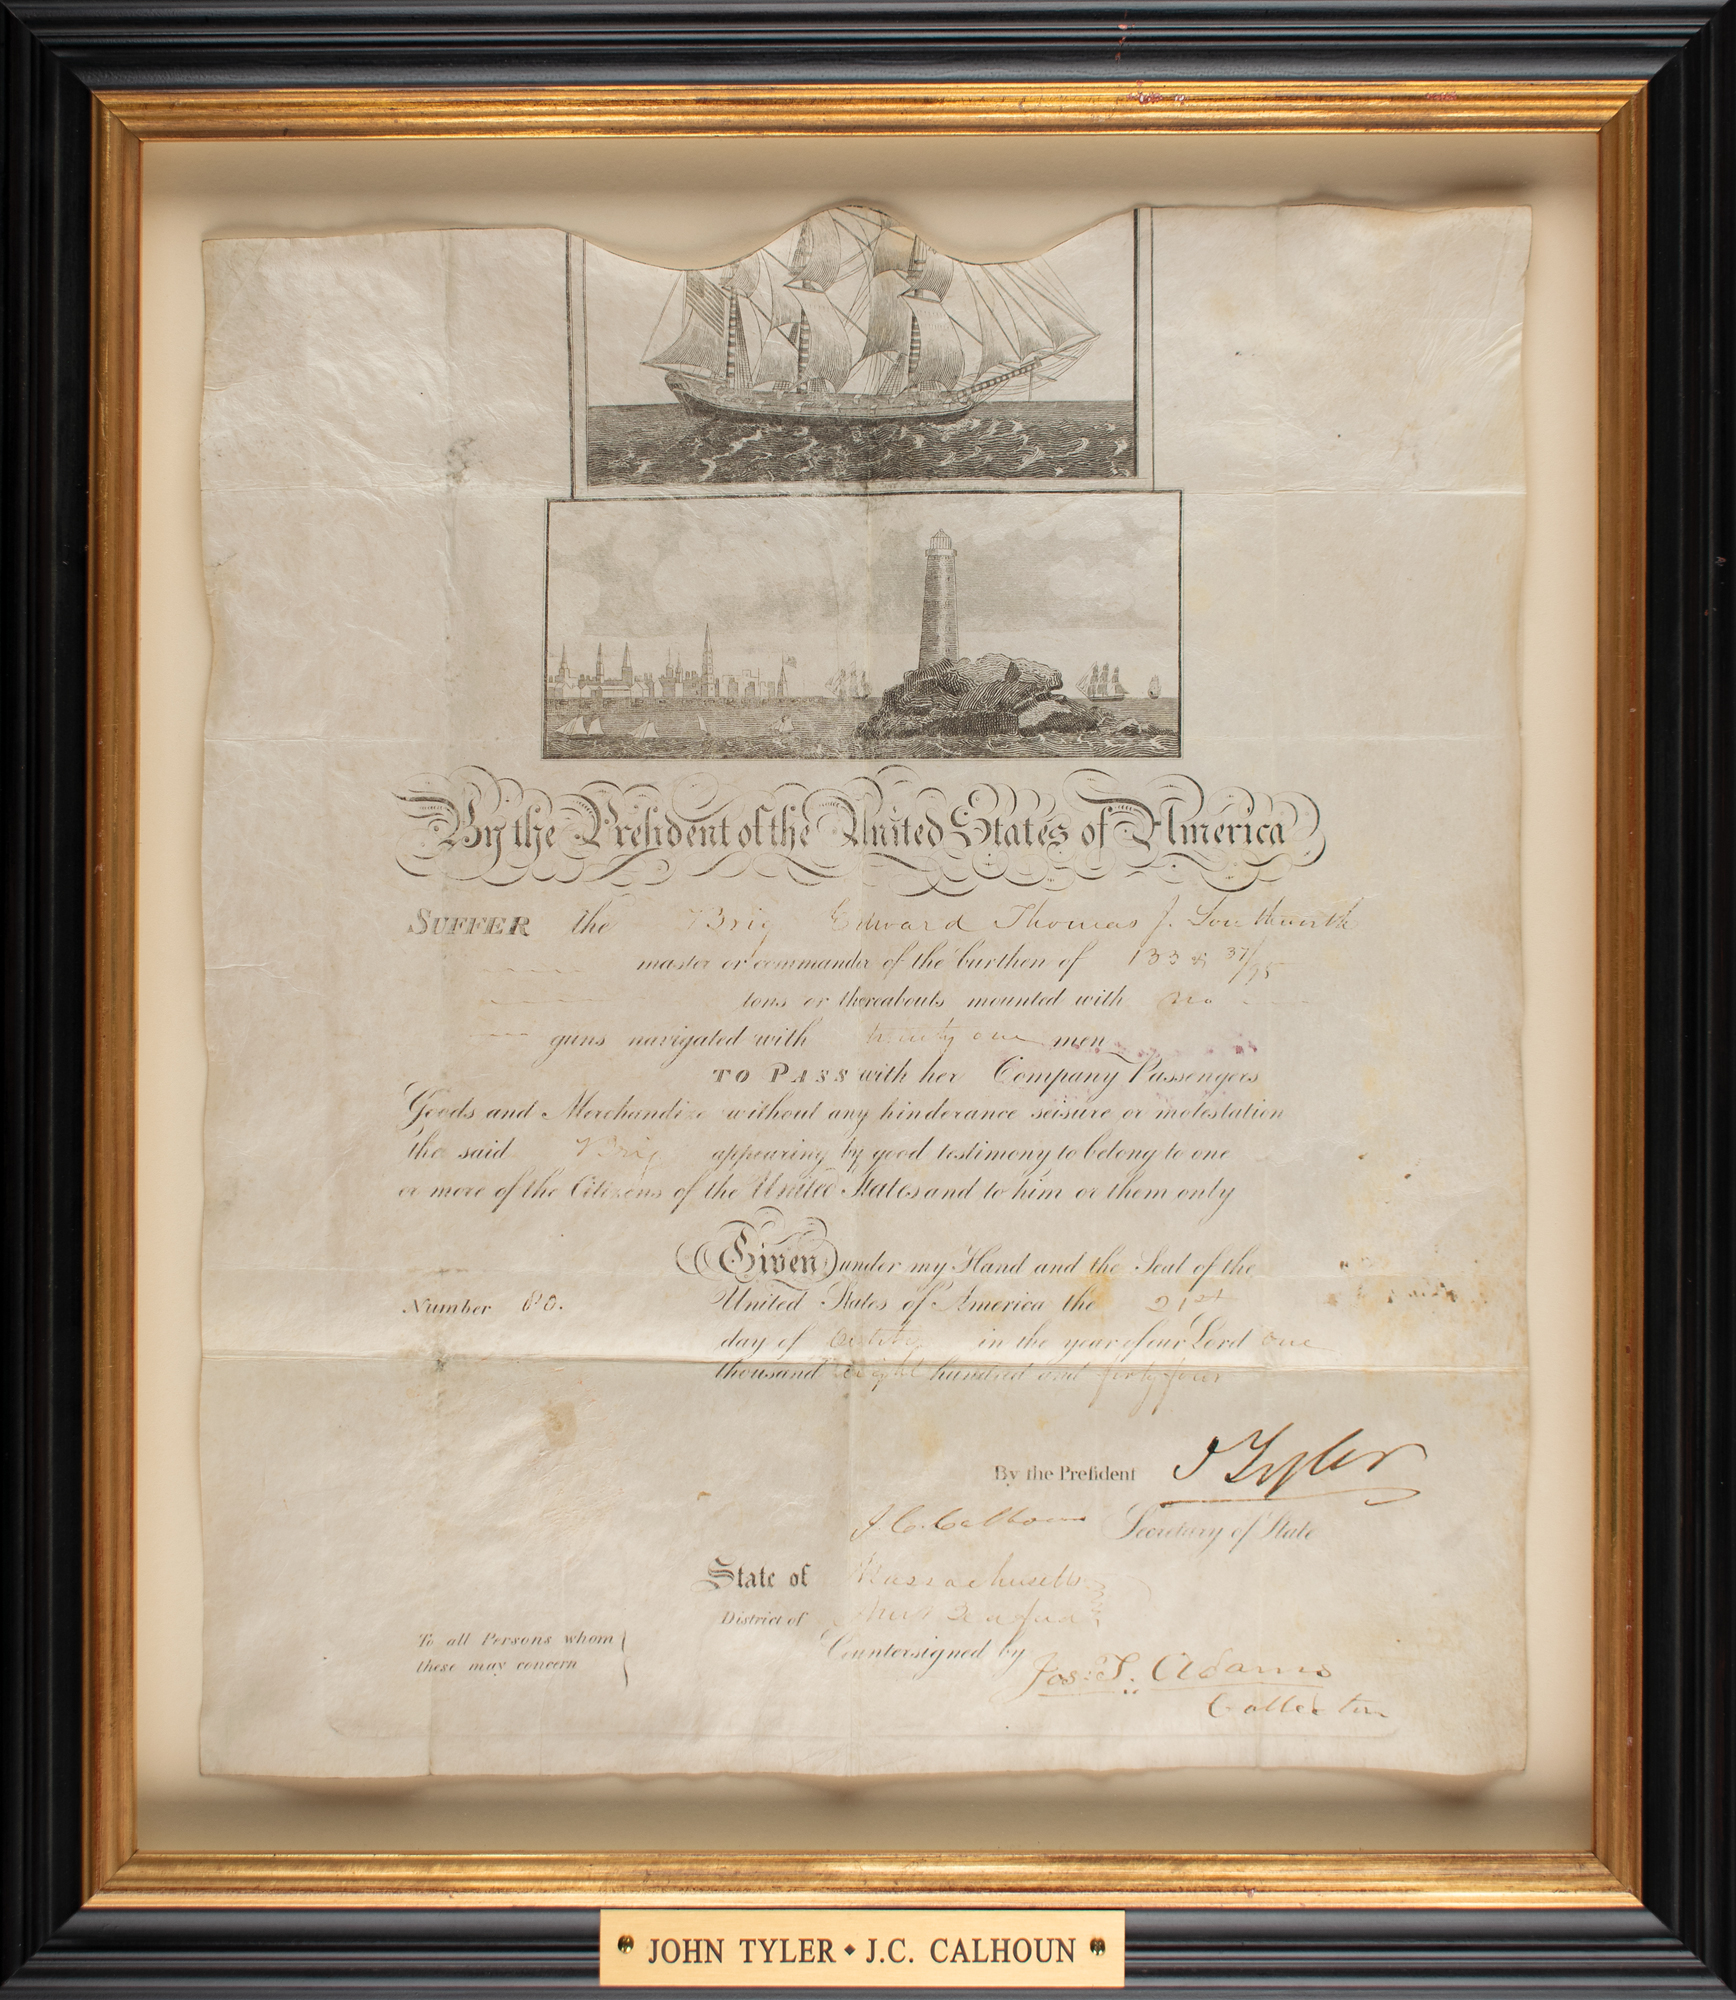 By the President of the United States of America
SUFFER the Brig Edward Thomas J. Southworth
master or commander of the burthen of 133 & 37/95
tons or thereabouts mounted with no
guns navigated with twenty one men
TO PASS with her Company Passengers
Goods and Merchandize without any hinderance seisure or molestation
the said Brig appearing by good testimony to belong to one
or more of the Citizens of the United States and to him or them only
Given under my Hand and the Seal of the
Number 80. United States of America the 21st
day of October in the year of our Lord one
thousand eight hundred and forty four
By the President J Tyler
J. C. Calhoun Secretary of State
State of Massachusetts
District of New Bedford
To all Persons whom
these may concern
Countersigned by Jos. T. Adams
Collector
JOHN TYLER ◆ J.C. CALHOUN